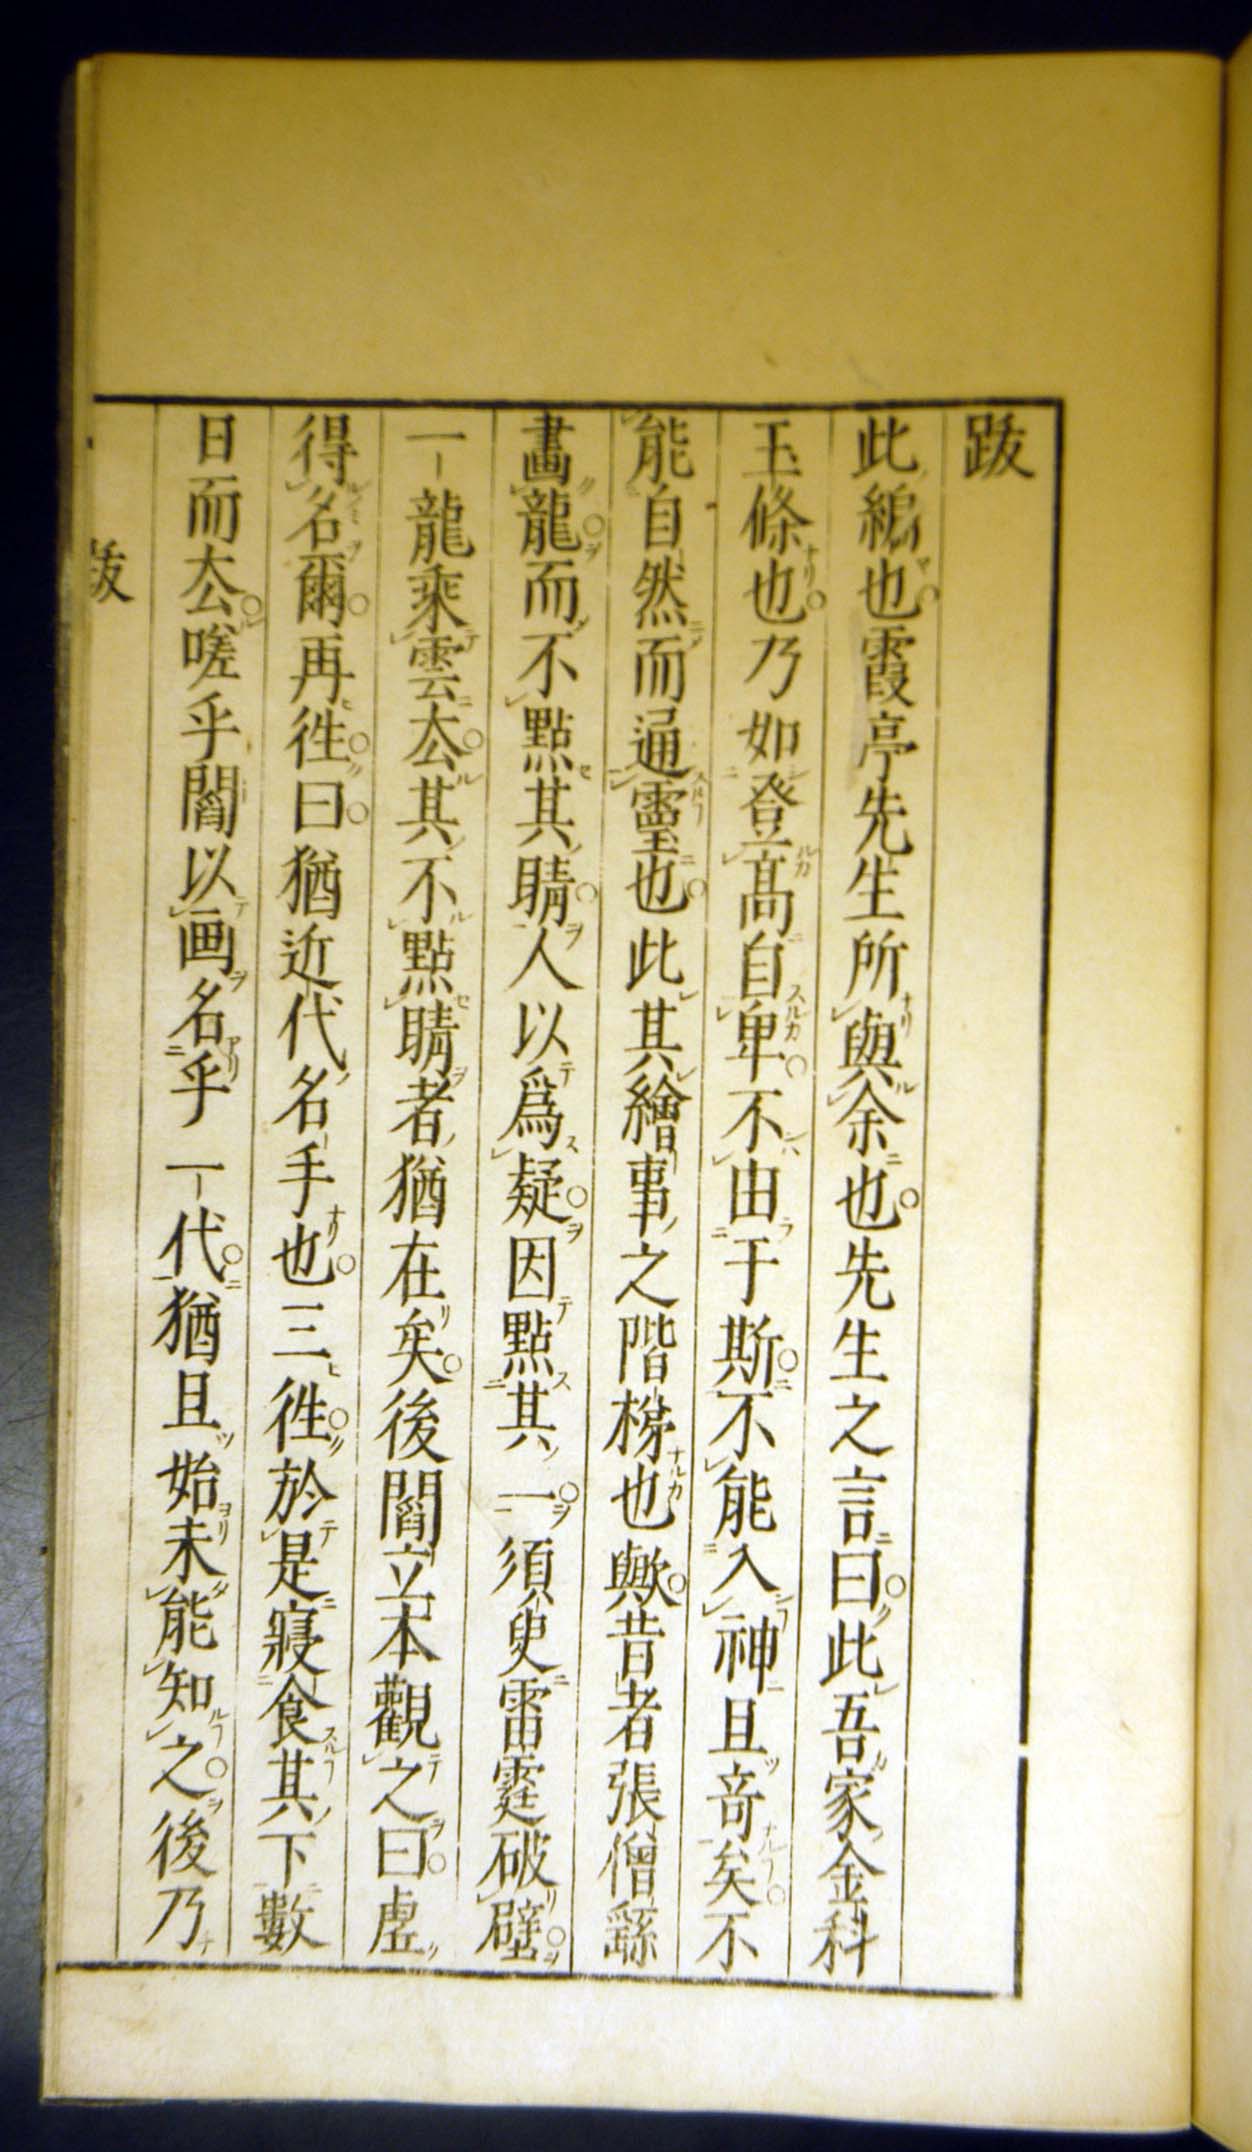 跋
此編也霞亭先生所與余也先生之言曰此吾家金科
玉條也乃如登髙自卑不由于斯不能入神且竒矣不
能自然而通靈也此其繪事之階梯也歟昔者張僧繇
畫龍而不點其睛人以爲疑因點其一須臾雷霆破壁
一龍乘雲厺其不點睛者猶在矣後閻立本觀之曰虚
得名爾再徃曰猶近代名手也三徃於是寢食其下數
日而厺嗟乎閻以画名乎一代猶且始未能知之後乃
跋